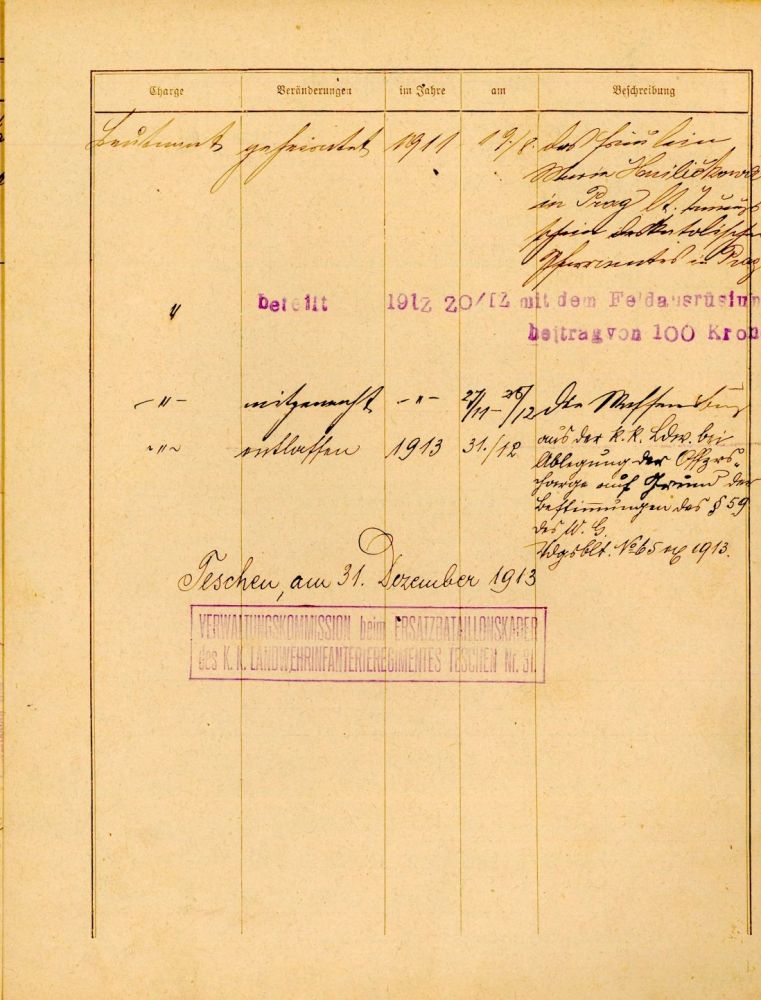 Charge Veränderungen im Jahre am Beschreibung
Leutnant geheiratet 1911 19/8. das Fräulein
Marie Havličkova
in Prag lt. Trauungs
schein des katolischen
Pfarramtes in Prag
" beteilt 1912 20/12 mit dem Feldausrüstun
beitrag von 100 Kron
-"- mitgemacht -"- 27/11- 26/12 die Waffenübung
-"- entlassen 1913 31./12 aus der k. k. Ldw. bei
Ablegung der Offzrs-
charge auf Grund der
Bestimmungen des § 59
des W. G.
Vdgsblt. № 65 1913.
Teschen, am 31. Dezember 1913
VERWALTUNGSKOMMISSION beim ERSATZBATAILLONSKADER
des K. K. LANDWEHRINFANTERIEREGIMENTES TESCHEN Nr. 31.